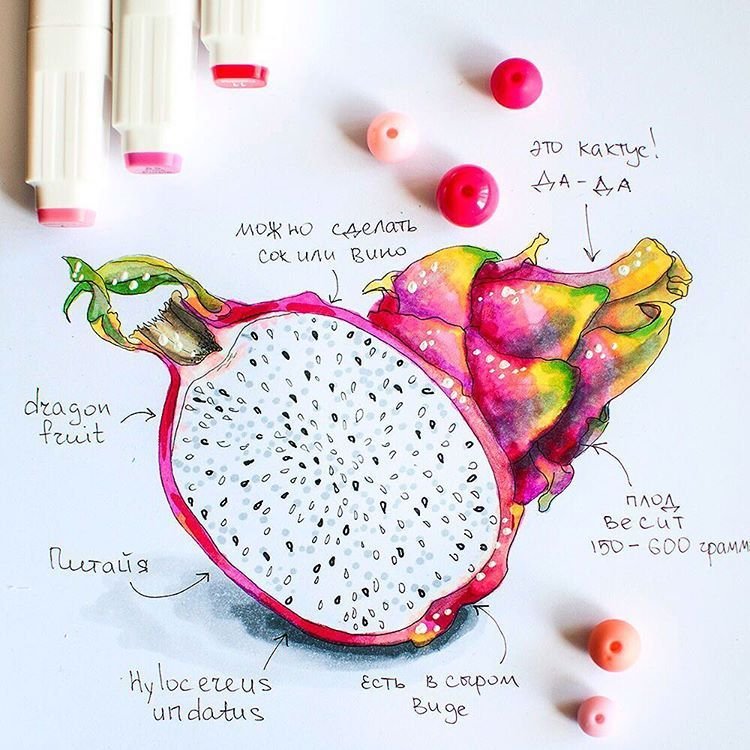 это кактус!
ДА-ДА
можно сделать
сок или вино
dragon
fruit
плод
весит
150-600 грамм
Питайя
Hylocereus
undatus
есть в сыром
виде